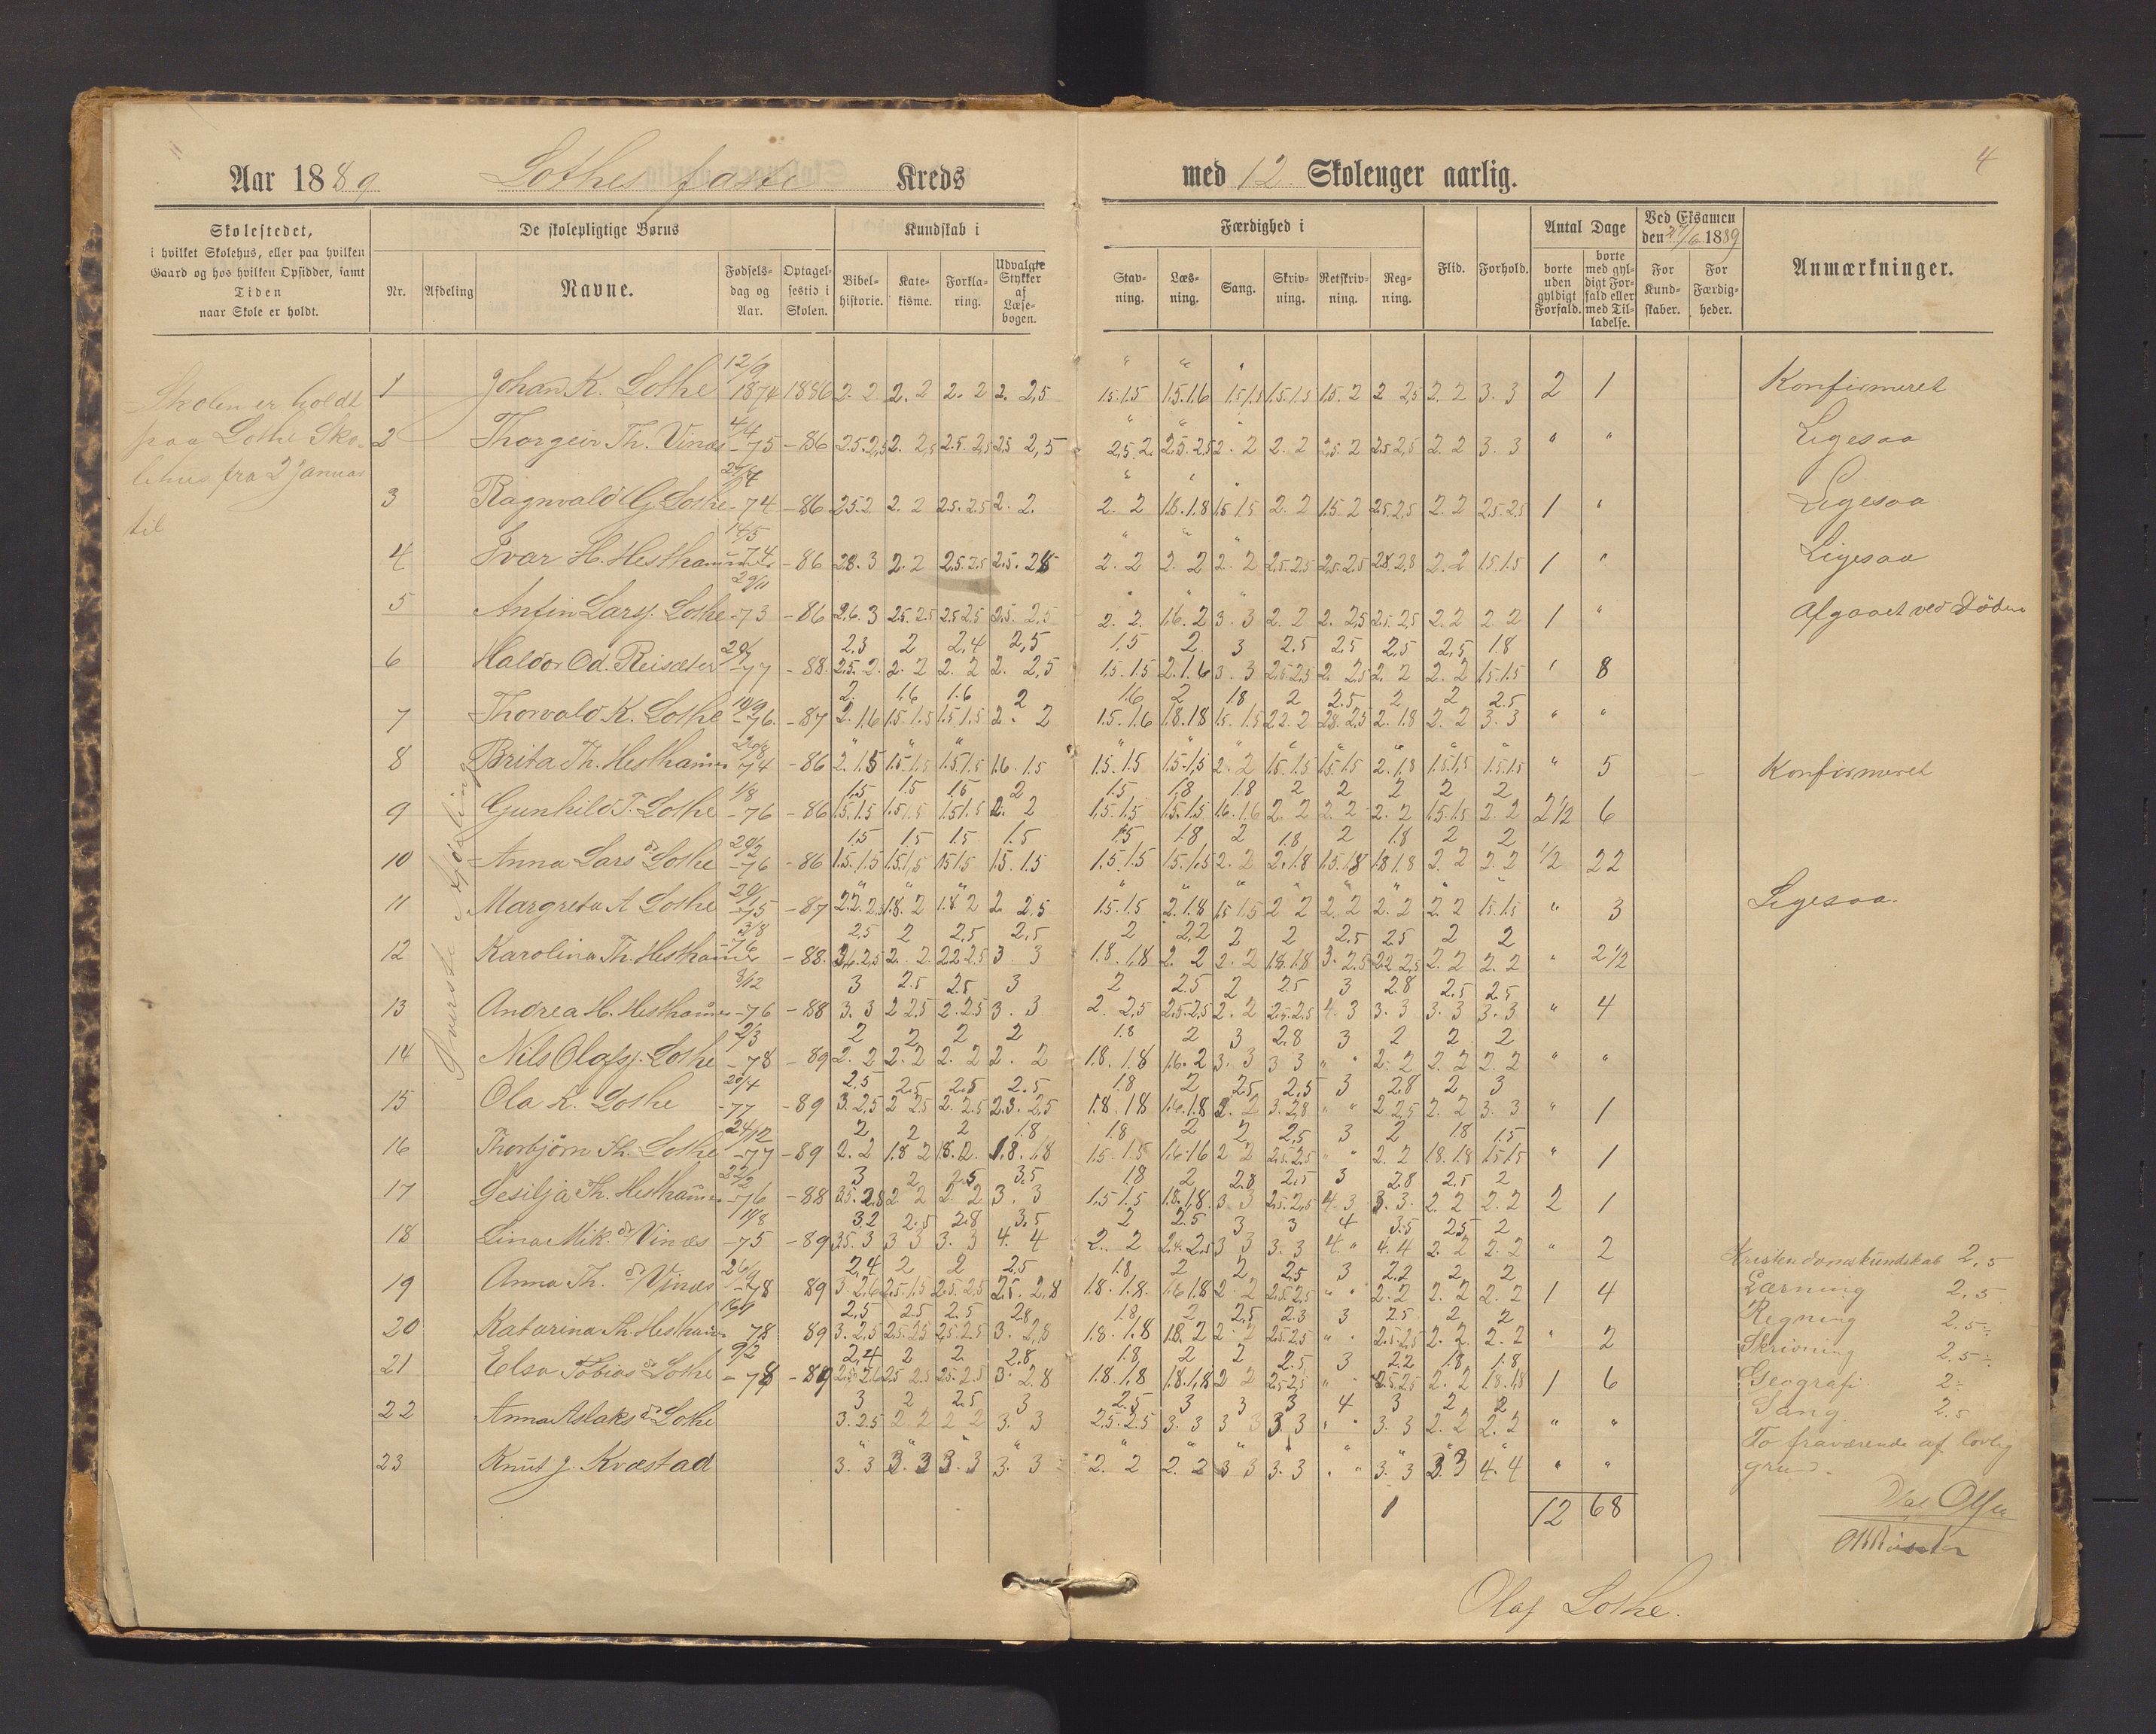 4
Aar 1889 Lothes faste Kreds med 12 Skoleuger aarlig.
Skolestedet, i hvilket Skolehus, eller paa hvilken Gaard og hos hvilken Opsidder, samt Tiden naar Skole er holdt.
De skolepligtige Børns
Nr. Afdeling Navne. Fødselsdag og Aar. Optagelsestid i Skolen.
Kundskab i
Bibelhistorie. Katekisme. Forklaring. Udvalgte Stykker af Læsebogen.
Færdighed i
Stavning. Læsning. Sang. Skrivning. Retskrivning. Regning.
Flid. Forhold.
Antal Dage
borte uden gyldigt Forfald. borte med gyldigt Forfald eller med Tilladelse.
Ved Eksamen den 27/6 1889
For Kundskaber. For Færdigheder.
Anmærkninger.
Skolen er holdt
paa Lothe Sko-
lehus fra 2 Januar
til
Øverste Afdeling
1 Johan K. Lothe 12/9 1874 1886 2. 2 2. 2 2. 2 2. 2,5 1.5. 1.5 1.5. 1.6 1.5 1.5 1.5. 1.5 1.5. 2 2 2,5 2. 2 3. 3 2 1 Konfirmeret
2 Thorgeir Th. Vinæs 4/4 -75 -86 2.5. 2,5 2. 2,5 2.5. 2,5 2,5 2,5 2,5. 2. 2.5. 2.5 2. 2 2. 2 2,5. 2 2.5 2,5 2. 2 3. 3 " " Ligesaa
3 Ragnvald G. Lothe -74 -86 2.5. 2 2. 2 2.5. 2.5 2. 2. 2. 2 1.8. 1.8 1.5 1.5 2. 2 1.5. 2 2.5. 2,5 2. 2 2.5. 2.5 1 " Ligesaa
4 Ivar H. Hesthammer 14/5 -74 -86 2.8. 3 2. 2 2.5. 2.5 2. 2 2. 2 2. 2 2.5. 2.5 2.5. 2.5 2.8 2,8 2. 2 1.5. 1.5 1 " Ligesaa
5 Anfin Larss. Lothe 29/11 -73 -86 2.6. 3 2.5. 2.5 2.5 2.5 2,5. 2,5 2. 2. 1.6. 2 3. 3 2. 2 2. 2,5 2.5. 2.5 2. 2 2 2 1 " Afgaaet ved Døden
2.3 2 2,4 2,5 1.5 2 3 2.5 2.5 2,5 2,5 1.8
6 Haldor Od. Reisæter -77 -88. 2.5. 2. 2. 2 2. 2 2. 2,5 1.5. 1.5 2. 1.6 3. 3 2.5. 2.5 2. 2.5 2. 2 2. 2 1.5. 1.5 ' 8
2. 1.6 1.6 2 1.6 2 1.8 2 2.5 2 2 2.5
7 Thorvald K. Lothe -76. -87 2. 1.6 1.5. 1.5 1.5 1.5 2. 2 1.5. 1.6 1.8. 1.8 1.5. 1.5 2.2. 2 2.8. 2.5 2. 1.8 2. 2 3. 3 " "
8 Brita Th. Hesthamer -74 -86 2. 1.5 1.5. 1.5 1.5 1.5 1.6. 1.5 1.5. 1.5 1.5. 1,5 2. 2 1.5. 1.5 1.5. 1.5 2. 1.8 1.5. 1,5 1.5. 1.5 " 5 Konfirmeret
1.5 1.5 1.5 2 1.5 1,8 1.8 2 2 2 2 2
9 Gunhild T. Lothe 1/8 -76 -86 1.5. 1.5 1.5 1.5 1.5 1.5 2. 2 1,5. 1.5 1.5. 1.5 1.6. 1.6 2. 2 2. 2 2. 2 1.5. 1.5 2. 2 2 1/2 6
1.5 1.5 1.5 1.5 1.5 1.8 2 1.8 2 1.8 2 2
10 Anna Lars d. Lothe -76 -86 1.5. 1.5 1.5. 1,5 1.5 1.5 1.5. 1.5 1.5. 1.5 1.5. 1.5 2. 2 2. 1.8 1.5. 1.8 1.8 1.8 2. 2 2. 2 1/2 22
11 Margreta A Lothe -75 -87 2.2. 2,5 1.8. 2 1.8 2 2 2.5 1.5. 1.5 2. 1.8 1.5 1.5 2 2 2. 2 2. 2 2. 2 1.5. 1.5 " 3 Ligesaa.
2.5 2 2,5 2,5 2 2,2 2 2 2.5 2.5 2 2
12 Karolina Th. Hesthamer 3/8 -76 -88. 2,5 2. 2 2.2 2.5 3 3 1.8. 1.8 2. 2 2. 2 1.8. 1.8 3. 2.5 2.2 2,5 2. 2 2. 2 " 2 1/2
3 2.5 2.5 3 2 2.5 2 2.5 3 2.8 2.5 2.5
13 Andrea H. Hesthamer 8/12 -76 -88 3. 3 2 2.5 2. 2.5 3. 3 2. 2,5 2.5. 2.5 2. 2 2.5. 2.5 4. 3 3. 3 3. 3 3. 3 " 4
2 2 2 2 1.8 2 3 2.8 3 2 2 2
14 Nils Olafss. Lothe 2/3 -78 -89 2. 2 2. 2 2. 2 2. 2 1.8. 1.8 1.6. 2 3. 3 3 3 " " 2. 2 2. 2 2. 2 " "
2,5 2.5 2.5 2.5 1.8 2 2.5 2,5 3 2.8 2 3
15 Ola K. Lothe 20/4 -77 -89 3. 2,5 2 2.5 2. 2.5 2.3. 2,5 1.8. 1.8 1.6. 1.8 2. 2 3. 2,8 " " 2. 2,5 2. 2 3. 3 " 1
2 2 2 1.8 1.8 2 2 2,5 3 2 1.8 1.5
16 Thorbjørn Th. Lothe 24/12 -77 -89 2. 2 1.8 2 1.8. 2. 1.8. 1.8 1.5. 1.5 1.6. 1.6 2 2 2.5. 2.5 " " 2. 2 1.8. 1.8 1.5. 1.5 " 1
3 2 2.5 3.5 1.8 2 2.8 2.5 3 2.8 2.5 2
17 Sesilja Th. Hesthamer -76 -88 3.5. 2.8 2 2 2. 2 3. 3 1,5 1.5 1.8. 1,8. 3 3 2.5. 2,5 4. 3 3. 3. 2. 2 2. 2 2 1
3.2 2.5 2.8 3.5 2 2.5 3 3 4 3.5 2.5 2
18 Lina Mik. d. Vinæs -75 -89 3.5. 3 3 3 3. 3 4. 4 2. 2 2.4. 2.5 3 3 3. 3 4. " 4. 4 2. 2 2. 2 " 2
2,4 2 2 2.5 1.8 2 2 2,5 3 2.2 2 2
19 Anna Th. d. Vinæs -78 89 3. 2,6 2.5. 1.5 2.5. 2,5 2.5. 2,8 1.8. 1.8. 1.6 1.8 2. 2 2.5 2.5 " " 2. 2 2. 2 2. 2 1 4
2,5 2.5 2.5 2.8 1.8 2 2,5 2.3 3 2.5 2 2
20 Katarina Th. Hesthamer 78 89 3. 2,5 2.5. 2.5 2.5 2.5 3. 2,8 1.8. 1.8 1.8. 2 2. 2 2.5 2.5 " " 2.5. 2.5 2. 2. 2. 2 " 2
2,4 2 2. 2.8 1.8 2 2 2.5 3 2.2 1.8 1.8
21 Elsa Tobias d. Lothe 9/2 -78 -89 2.5. 2.6 2.5 2.5 2.5. 2.5 3. 2,8 1.8. 1.8 1.8. 1,8 2 2 2.5 2.5 " " 2.5. 2.5 2. 2 1.8. 1.8 1 6
3 2 2.5 3 2.5 3 3 3 4 3 2 2
22 Anna Aslaks d. Lothe 3. 2.5 2. 2 2 2 3. 3 2.5. 2.5 3. 3 3 3 3. 3 " " 3. 3 2. 2 2. 2 " "
23 Knut J. Kvæstad 3. 3 3. 3 3. 3 3. 3 2. 2 2. 2 3 3 3. 3 " " 3. 3 3. 3 4. 4 " "
12 68
Kristendomskundskab 2,5
Læsning 2,5
Regning 2,5÷
Skrivning 2.5÷
Geografi 2÷
Sang 2.5
To fraværende af lovlig
grund.
Olaf Lothe.